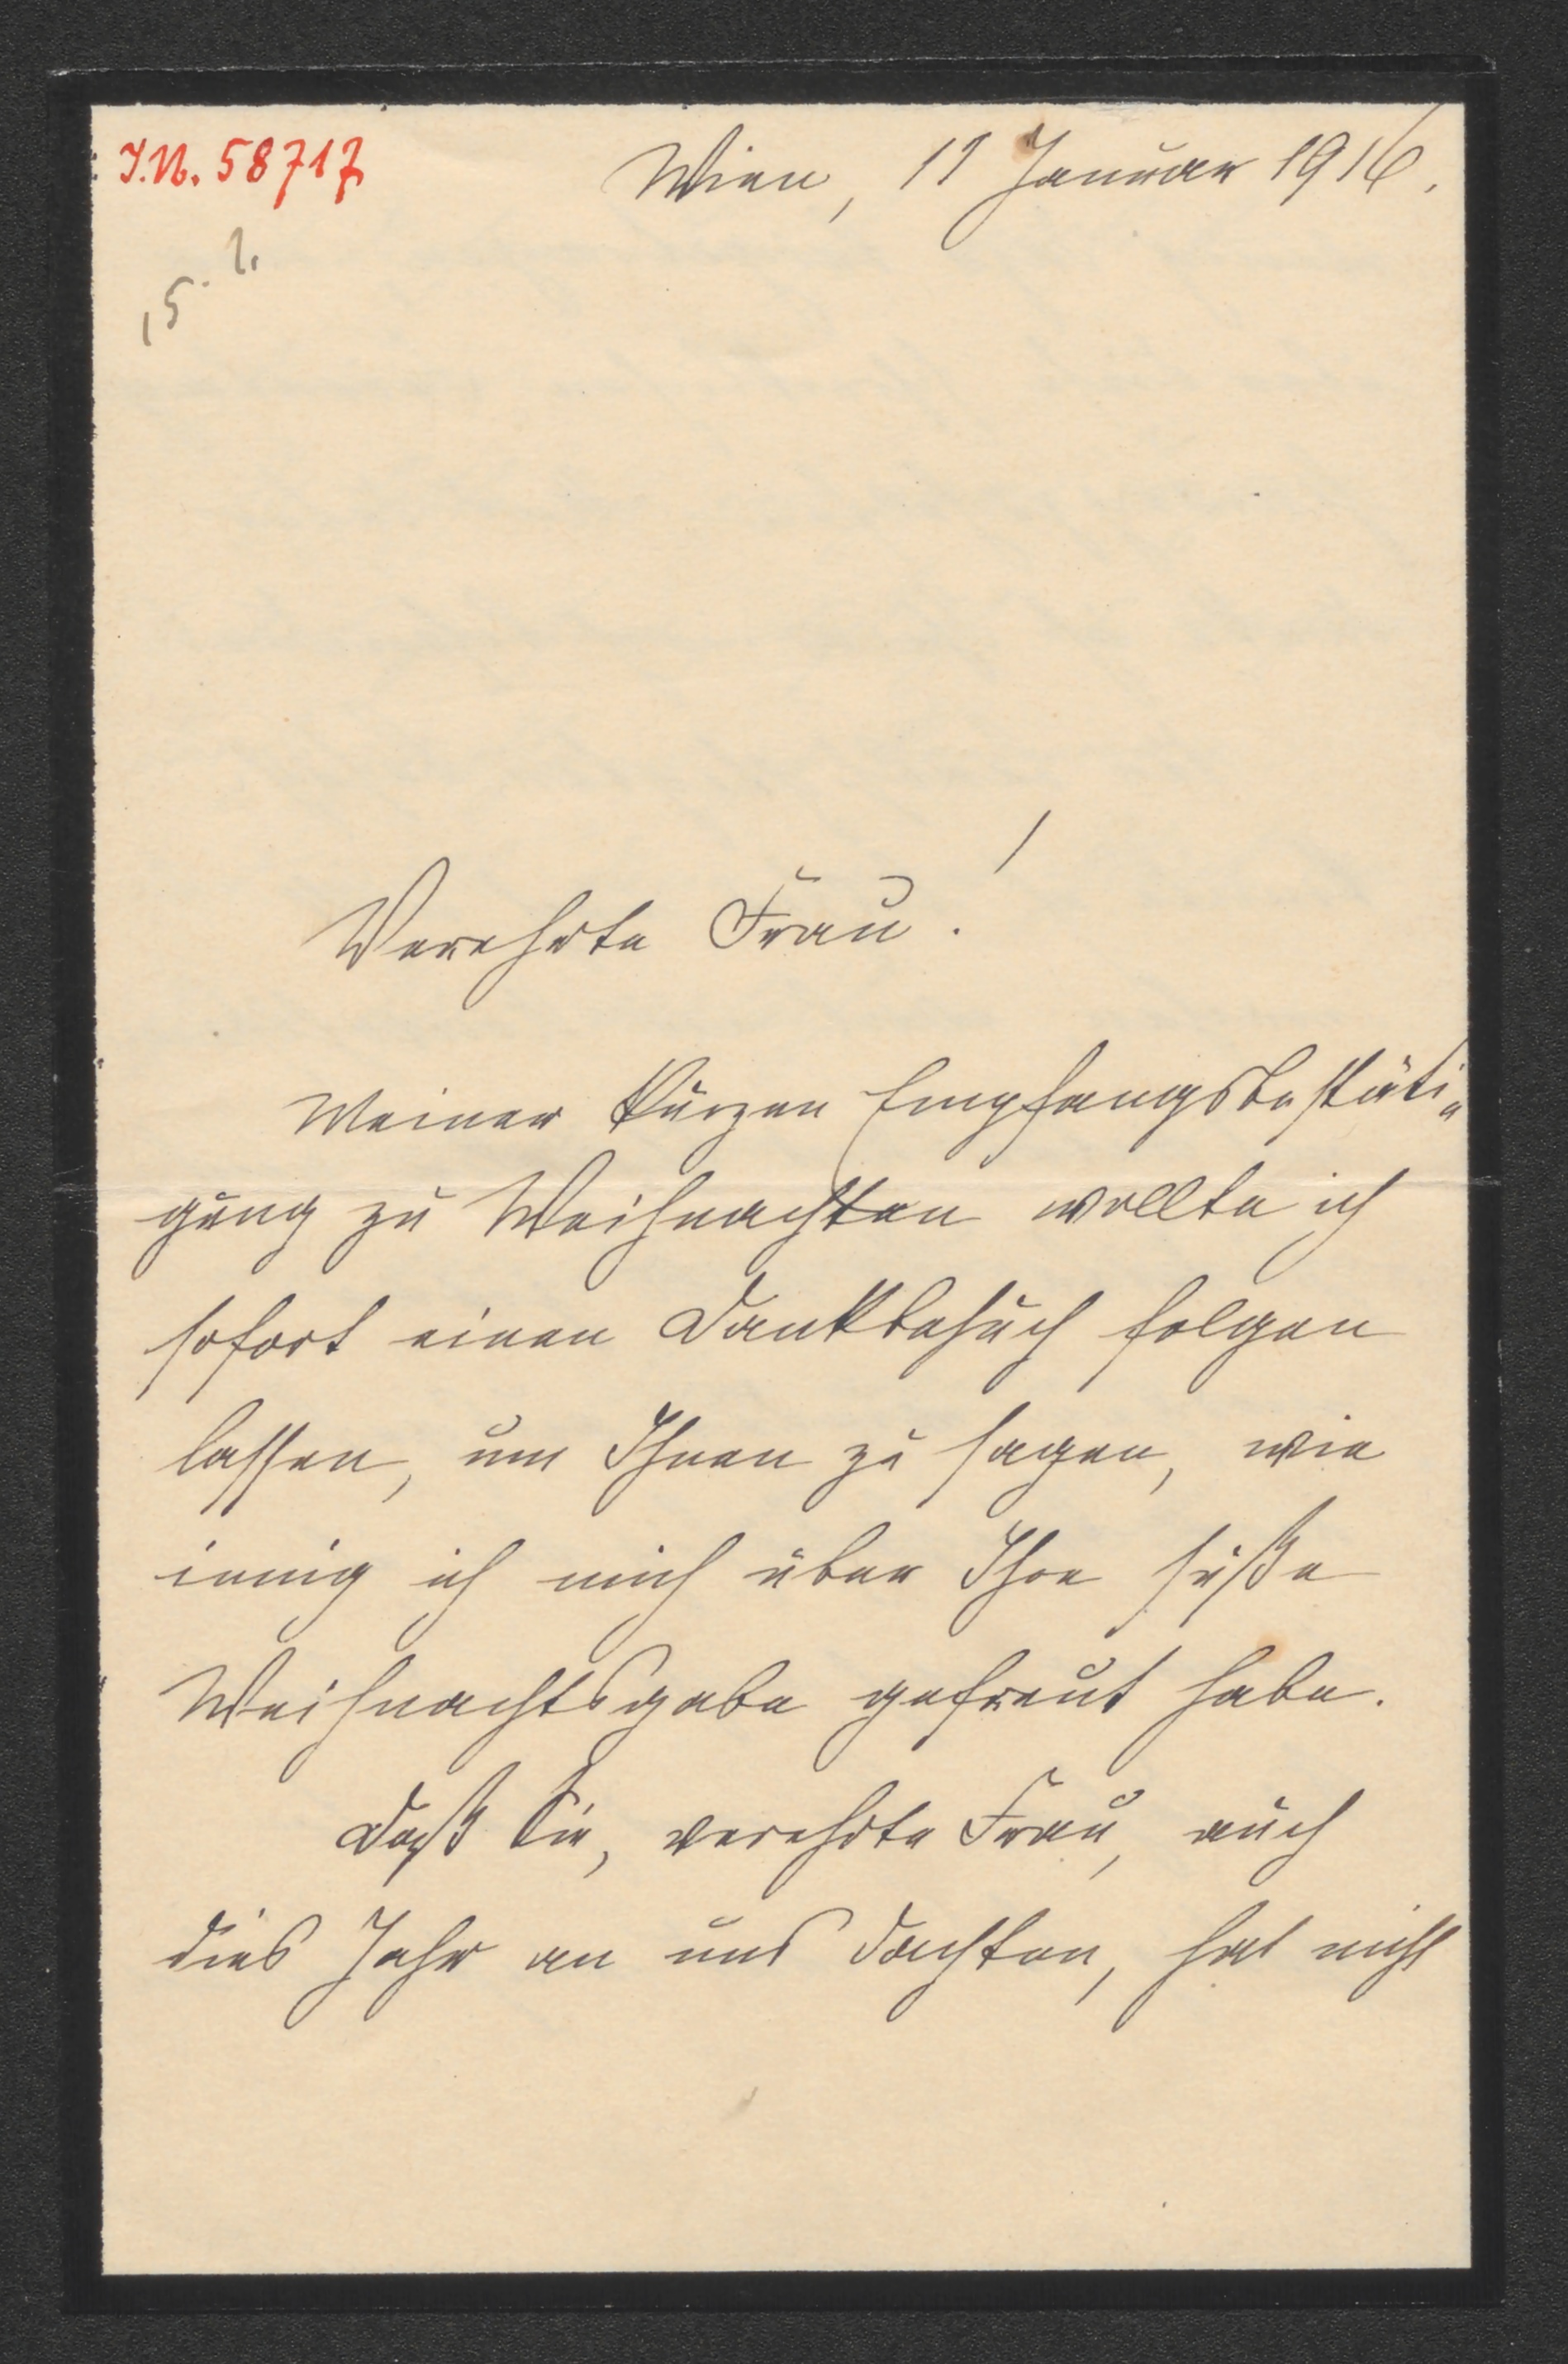 I.N. 58717
Wien, 11 Januar 1916.
15. 1.
Verehrte Frau!
Meiner kurzen Empfangsbestäti-
gung zu Weihnachten wollte ich
sofort einen Dankbesuch folgen
lassen, um Ihnen zu sagen, wie
innig ich mich über Ihre süße
Weihnachtsgabe gefreut habe.
Daß Sie, verehrte Frau, auch
dies Jahr an uns dachten, hat nicht